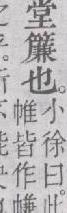 堂簾也。
小徐曰。此
帷皆作㡘